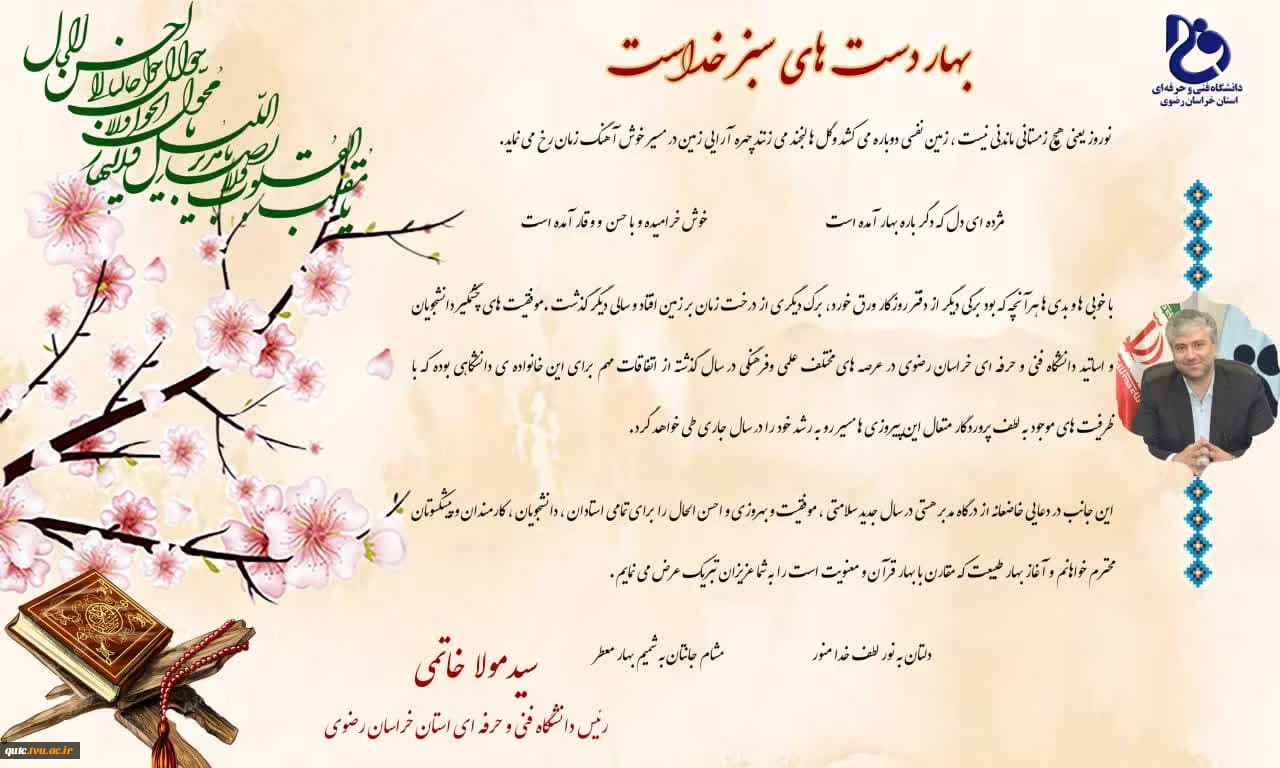 یا مقلب القلوب و الابصار
یا مدبر اللیل و النهار
یا محول الحول و الاحوال
حول حالنا الی احسن الحال
دانشگاه فنی و حرفه ای
استان خراسان رضوی
بهار دست های سبز خداست
نوروز یعنی هیچ زمستانی ماندنی نیست ، زمین نفسی دوباره می کشد و گل ها لبخند می زنند چهره آرایی زمین در مسیر خوش آهنگ زمان رخ می نماید.
مژده ای دل که دگر باره بهار آمده است خوش خرامیده و با حسن و وقار آمده است
با خوبی ها و بدی ها هر آنچه که بود برگی دیگر از دفتر روزگار ورق خورد، برگ دیگری از درخت زمان بر زمین افتاد و سالی دیگر گذشت .موفقیت های چشمگیر دانشجویان
و اساتید دانشگاه فنی و حرفه ای خراسان رضوی در عرصه های مختلف علمی وفرهنگی در سال گذشته از اتفاقات مهم برای این خانواده ی دانشگاهی بوده که با
ظرفیت های موجود به لطف پروردگار متعال این پیروزی ها مسیر رو به رشد خود را در سال جاری طی خواهد کرد.
این جانب در دعایی خاضعانه از درگاه مدبر هستی در سال جدید سلامتی ، موفقیت و بهروزی و احسن الحال را برای تمامی استادان ، دانشجویان ، کارمندان و پیشکسوتان
محترم خواهانم و آغاز بهار طبیعت که مقارن با بهار قرآن و معنویت است را به شما عزیزان تبریک عرض می نمایم .
دلتان به نور لطف خدا منور مشام جانتان به شمیم بهار معطر
سید مولا خاتمی
رئیس دانشگاه فنی و حرفه ای استان خراسان رضوی
qutc.tvu.ac.ir